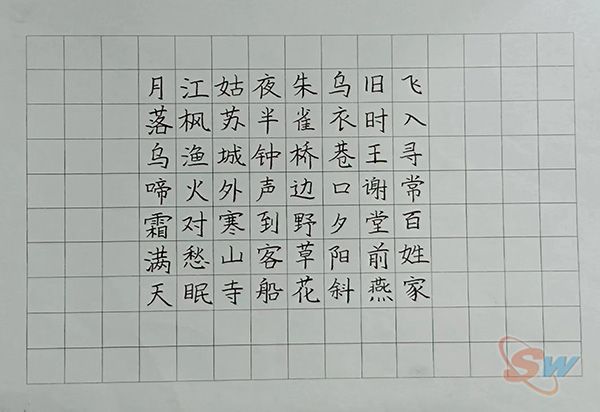 月落乌啼霜满天
江枫渔火对愁眠
姑苏城外寒山寺
夜半钟声到客船
朱雀桥边野草花
乌衣巷口夕阳斜
旧时王谢堂前燕
飞入寻常百姓家
SW